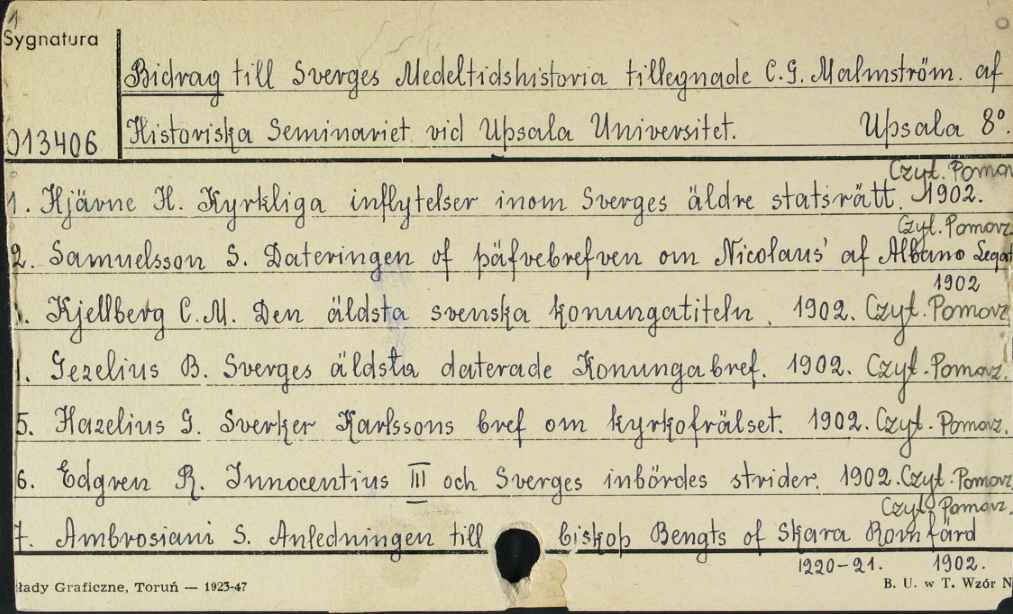 1
Sygnatura
013406
Bidrag till Sverges Medeltidshistoria tillegnade C.G. Malmström. af
Historiska Seminariet vid Upsala Universitet. Upsala 8°.
Czyt. Pomor
1. Hjärne H. Kyrkliga inflytelser inom Sverges äldre statsrätt. 1902.
Czyt. Pomorz.
2. Samuelsson S. Dateringen of päfvebrefven om Nicolaus' af Albano Legat
1902
. Kjellberg C.M. Den äldsta svenska konungatiteln. 1902. Czyt. Pomorz.
. Gezelius B. Sverges äldsta daterade Konungabref. 1902. Czyt. Pomorz.
5. Hazelius G. Sverker Karlssons bref om kyrkofrälset. 1902. Czyt. Pomorz.
6. Edgren R. Innocentius III och Sverges inbördes strider. 1902. Czyt. Pomorz.
Czyt. Pomorz.
7. Ambrosiani S. Anledningen till biskop Bengts of Skara Romfärd
1220-21. 1902.
łady Graficzne, Toruń — 1923-47 B. U. w T. Wzór N